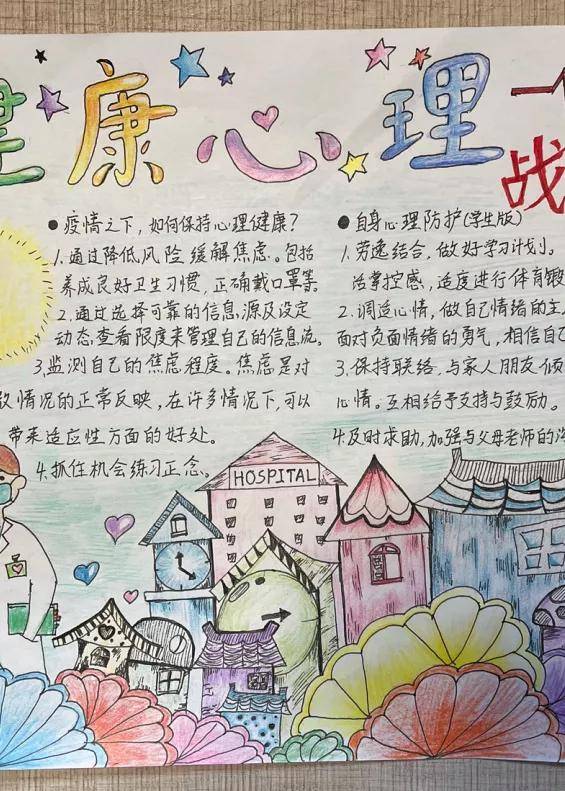 健康心理一
战
●疫情之下，如何保持心理健康？
1.通过降低风险缓解焦虑。包括
养成良好卫生习惯，正确戴口罩等
2.通过选择可靠的信息源及设定
动态查看限度来管理自己的信息流。
3.监测自己的焦虑程度。焦虑是对
情况的正常反映，在许多情况下，可以
带来适应性方面的好处。
4.抓住机会练习正念。
●自身心理防护(学生版)
1.劳逸结合，做好学习计划。
活掌控感，适度进行体育锻
2.调适心情，做自己情绪的主
面对负面情绪的勇气，相信自
3.保持联络，与家人朋友倾
心情。互相给予支持与鼓励。
4.及时求助，加强与父母老师的
HOSPITAL